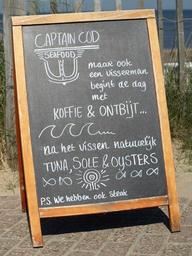 CAPTAIN COD
SEAFOOD
maar ook
een visserman
begint de dag
met
KOFFIE & ONTBIJT...
na het vissen natuurlijk
TUNA, SOLE & OYSTERS
P.S. We hebben ook Steak